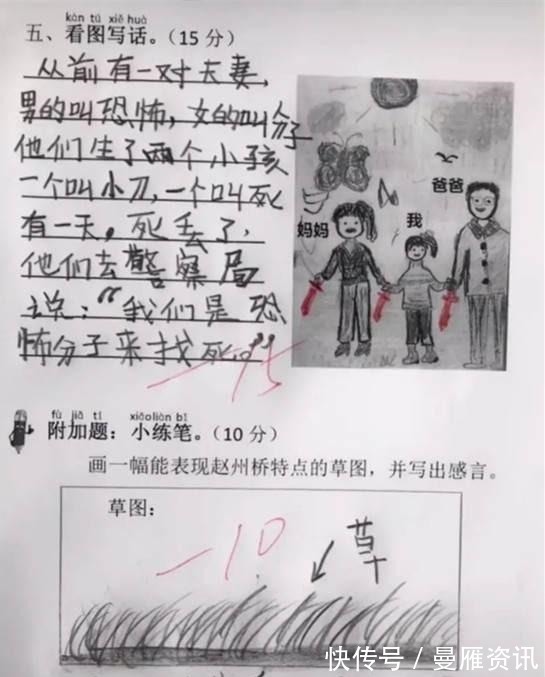 kàn tú xiě huà
五、看图写话。(15 分)
从前有一对夫妻，
男的叫恐怖，女的叫分子
他们生了两个小孩
一个叫小刀，一个叫死
有一天，死丢了，
他们去警察局
说：“我们是恐
怖分子来找死。”
爸爸
我
妈妈
-15
fù jiā tí xiǎoliàn bǐ
附加题：小练笔。(10 分)
画一幅能表现赵州桥特点的草图，并写出感言。
草图：
-10
草
快传号 / 曼雁资讯